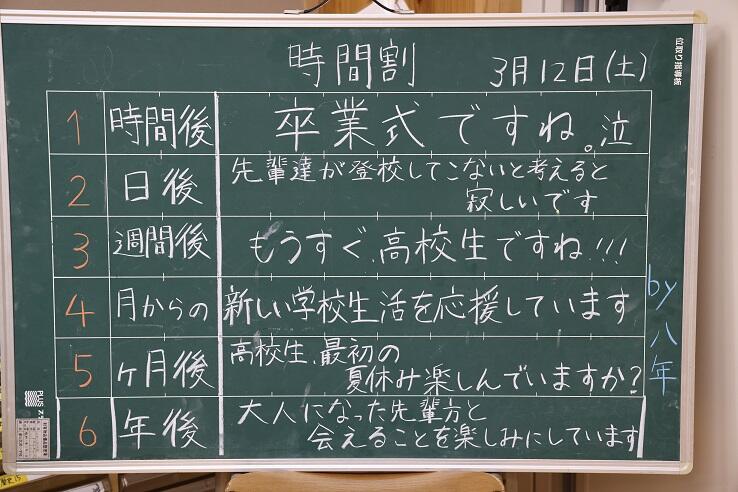 時間割 3月12日(土)
1 時間後 卒業式ですね。泣
2 日後 先輩達が登校してこないと考えると
寂しいです
3 週間後 もうすぐ、高校生ですね!!!
4 月からの 新しい学校生活を応援しています
5 ヶ月後 高校生、最初の
夏休み楽しんでいますか?
6 年後 大人になった先輩方と
会えることを楽しみにしています
by 八年
PLUS